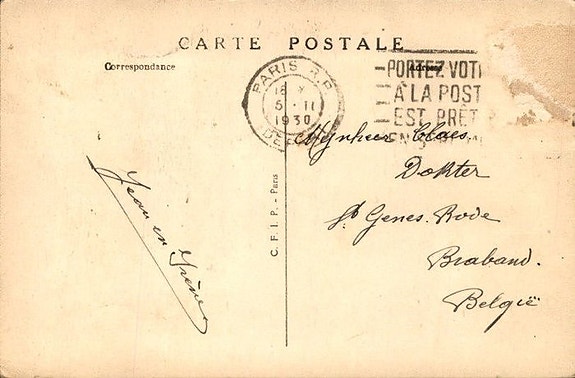 CARTE POSTALE
Correspondance
Adresse
PARIS R.P.
18
5 - II
1930
DEP
PORTEZ VOT
A LA POST
EST PRÊT
EN
Mynheer Claes
Dokter
St Genes. Rode
Braband.
België
Jean en Irène
C. F. I. P. - Paris